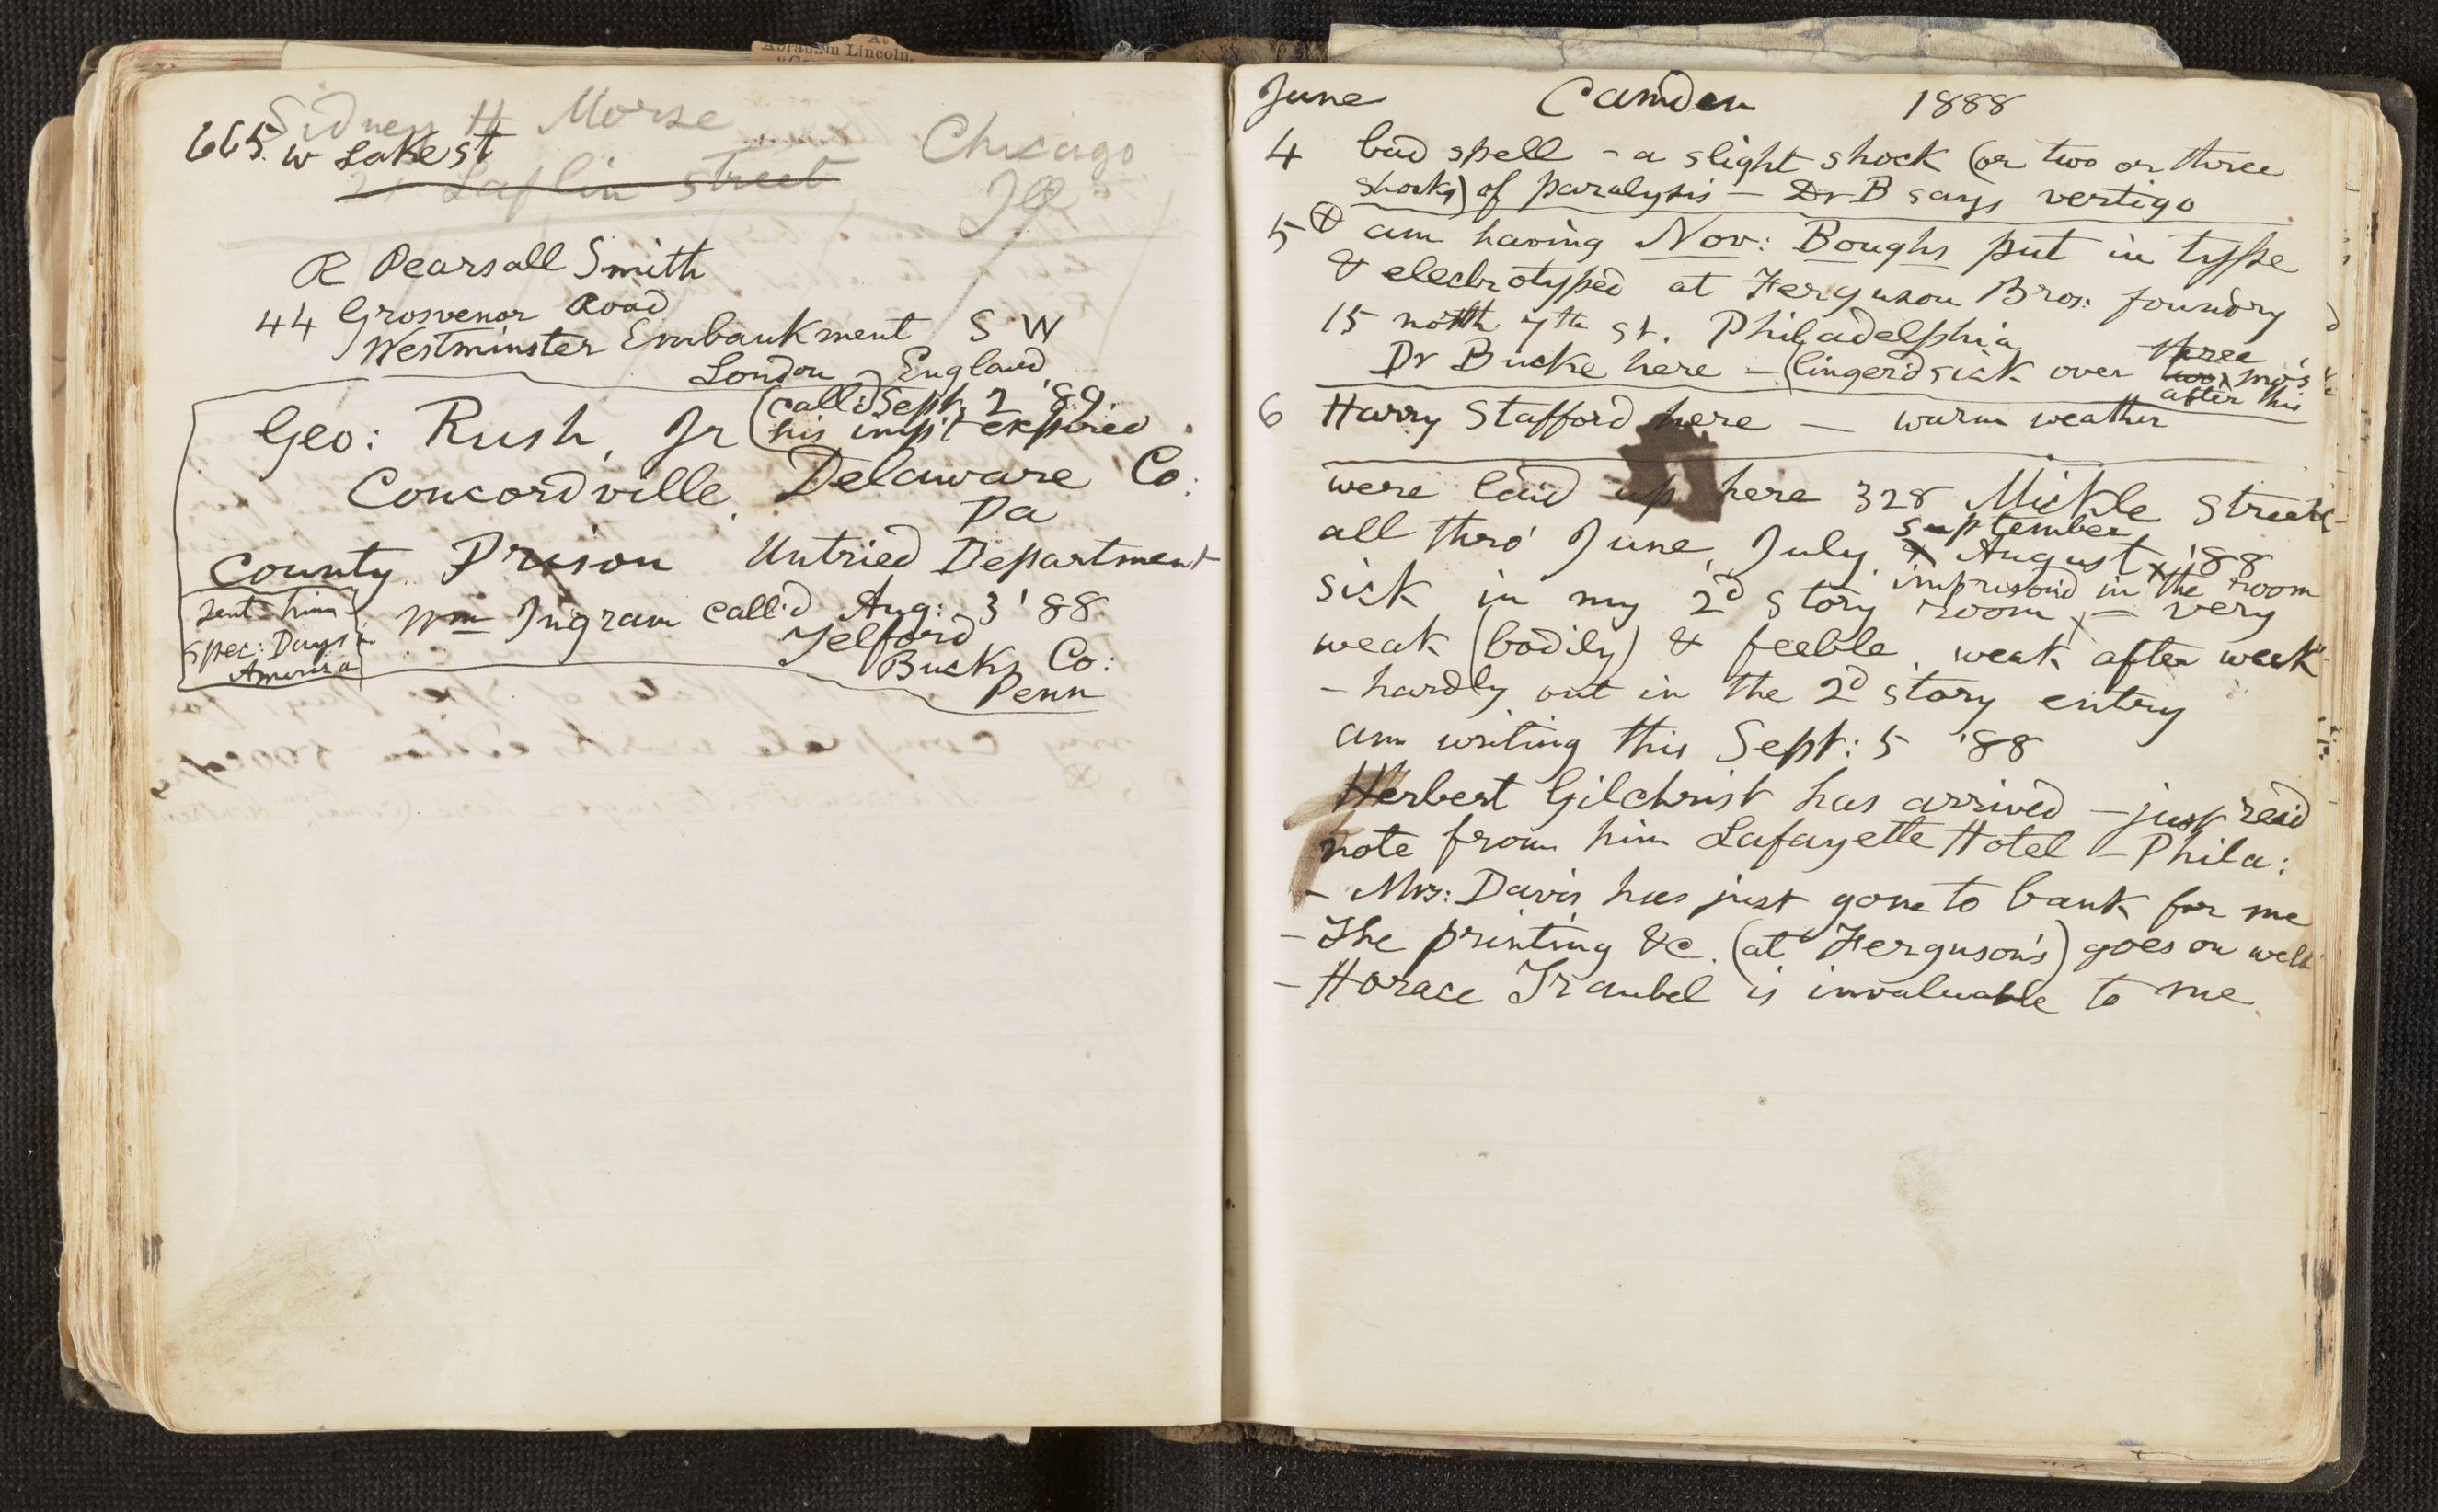 At
Abraham Lincoln.
Sidney H Morse
665 w Lake st
Chicago
Laflin street
Ill
R Pearsall Smith
44 Grosvenor Road
Westminster Embankment S W
London England
Geo: Rush, Jr (call'd Sept. 2 '89
his imp't expired
Concordville, Delaware Co:
Pa
County Prison Untried Department
sent him
Spec: Days in
America
Wm Ingram call'd Aug: 3 '88
Telford
Bucks Co:
Penn
June Camden 1888
4 bad spell - a slight shock (or two or three
shocks) of paralysis - Dr B says vertigo
5 ⊗ am having Nov: Boughs put in type
& electrotyped at Ferguson Bros: foundry
15 north 7th st. Philadelphia
Dr Bucke here - (linger'd sick over two three mo's
after this
6 Harry Stafford here - warm weather
were laid up here 328 Mickle Street
all thro' June, July, & August September '88
sick in my 2d story room imprison'd in the room - very
weak (bodily) & feeble, week after week
- hardly out in the 2d story entry
am writing this Sept: 5 '88
Herbert Gilchrist has arrived - just rec'd
note from him Lafayette Hotel - Phila:
- Mrs: Davis has just gone to bank for me
- The printing &c. (at Ferguson's) goes on well
- Horace Traubel is invaluable to me